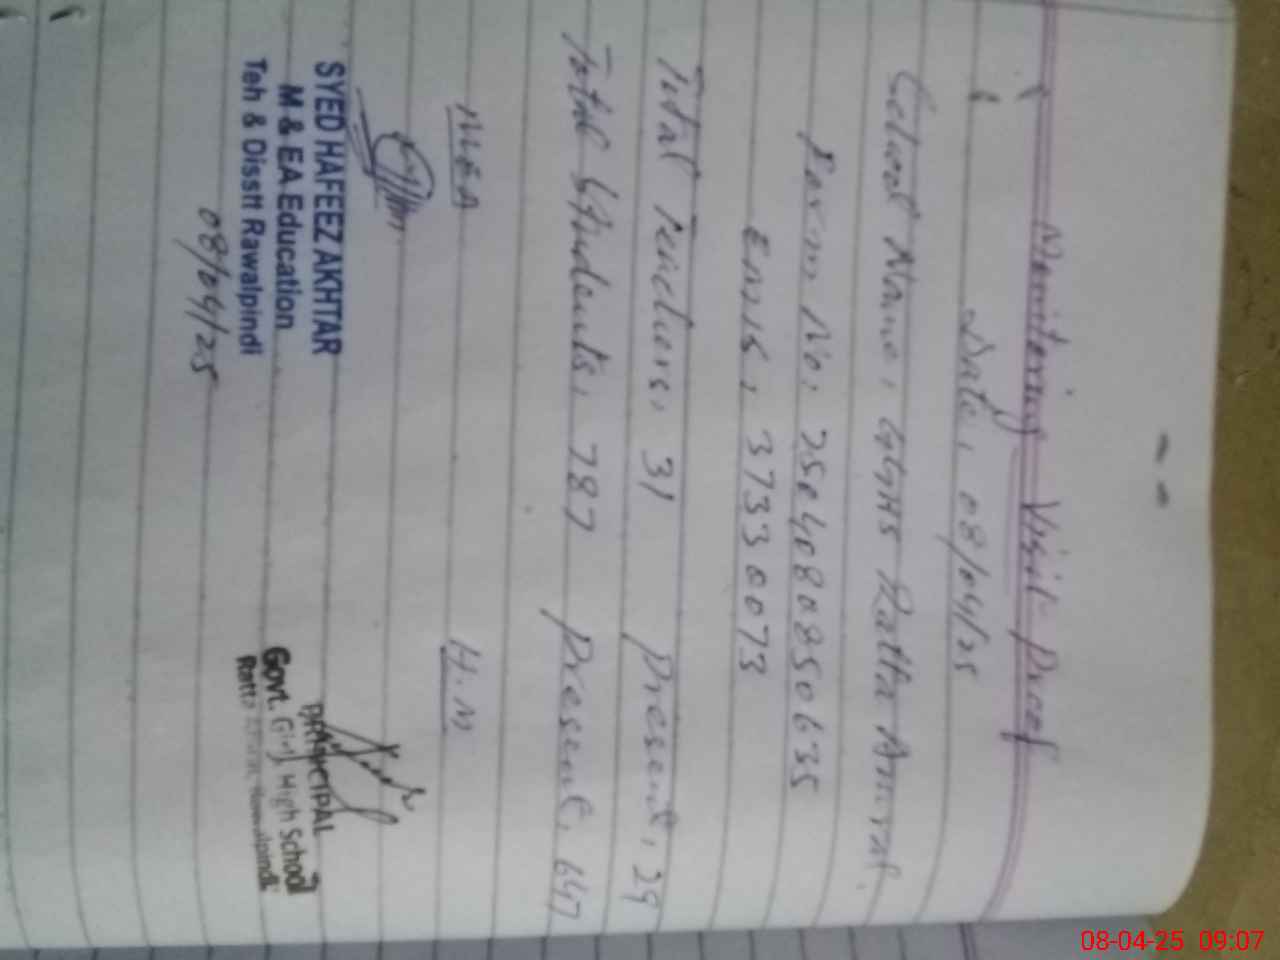 Monitoring Visit Proof
Date, 08/04/25
School Name, GGHS Ratta Amral
Form No, 2504080850635
EMIS, 37330073
Total Teachers, 31 Present, 29
Total Students, 787 Present, 647
MEA H.M
SYED HAFEEZ AKHTAR
M & EA Education
Teh & Disstt Rawalpindi
08/04/25
PRINCIPAL
Govt. Girls High School
Ratta Rawalpindi
08-04-25 09:07